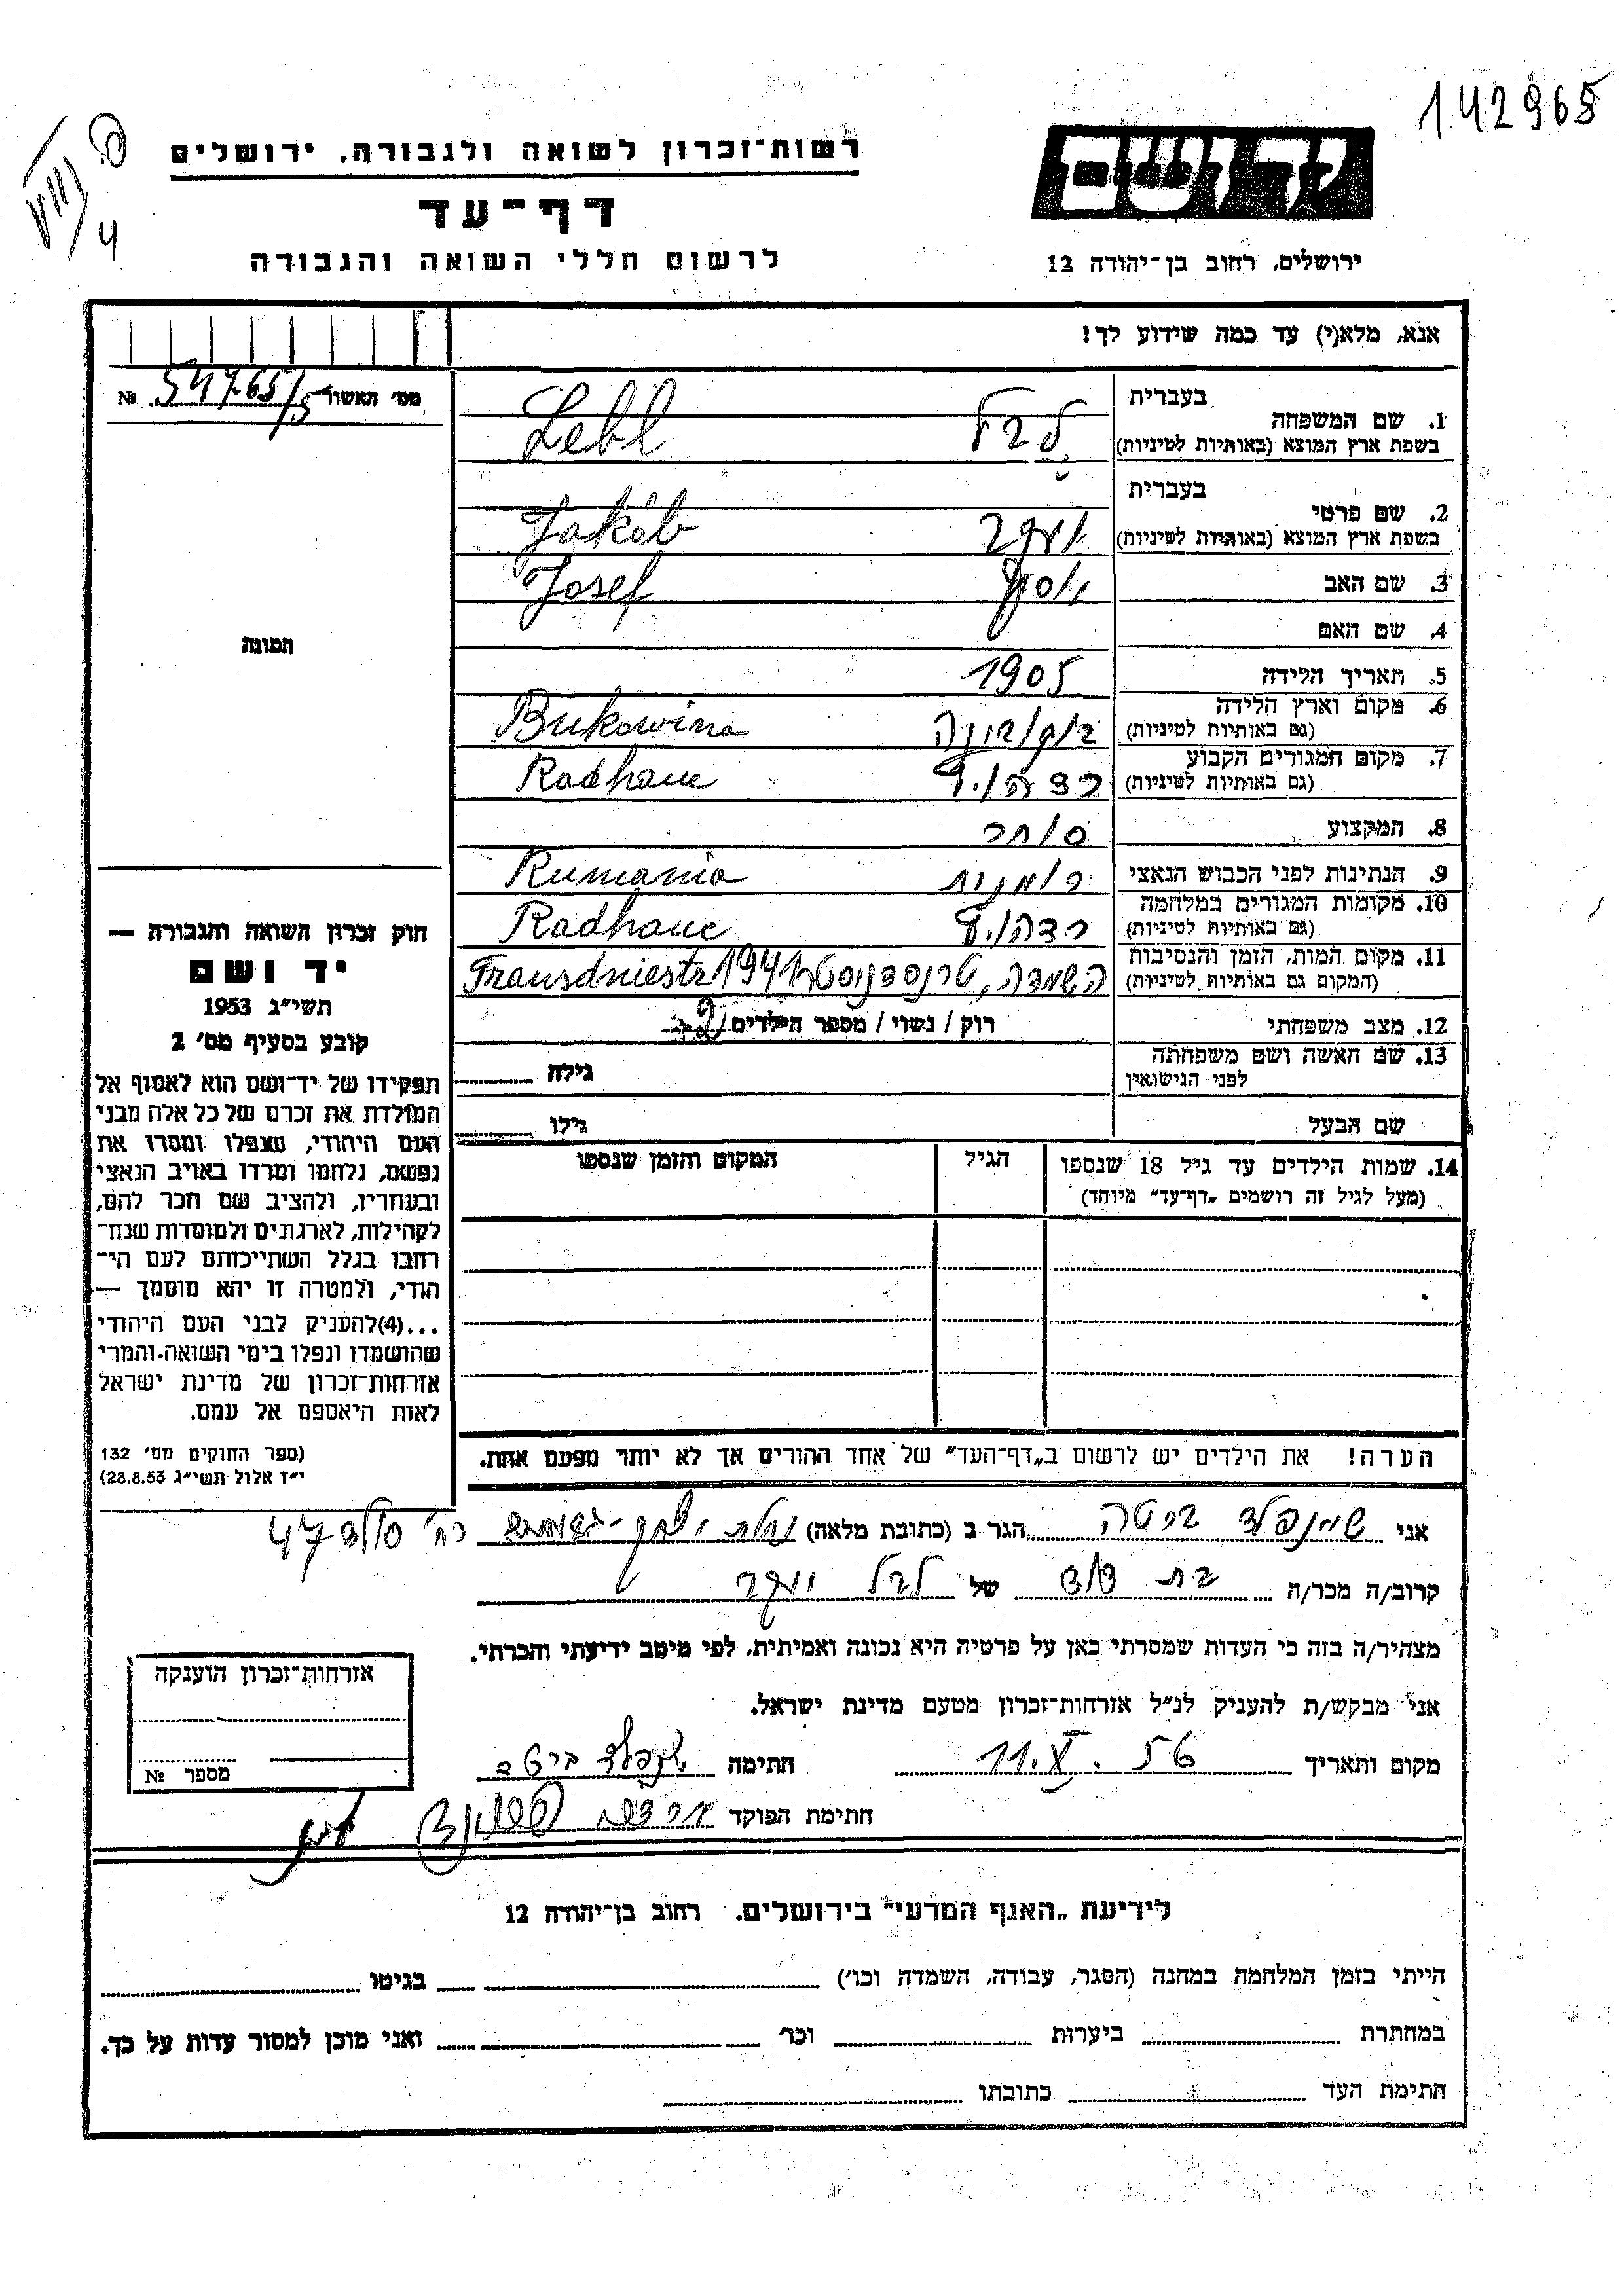 142965
VIII/4
רשות־זכרון לשואה ולגבורה, ירושלים
דף־עד
לרשום חללי השואה והגבורה
יד ושם
ירושלים, רחוב בן־יהודה 12
אנא, מלא(י) עד כמה שידוע לך!
מס׳ האשור 54765/5 №
תמונה
1. שם המשפחה בעברית לבל
בשפת ארץ המוצא (באותיות לטיניות) Lebl
2. שם פרטי בעברית יעקב
בשפת ארץ המוצא (באותיות לטיניות) Jakób
3. שם האב יוסף Josef
4. שם האם
5. תאריך הלידה 1905
6. מקום וארץ הלידה בוקובינה Bukowina
(גם באותיות לטיניות)
7. מקום המגורים הקבוע Radhauc
(גם באותיות לטיניות)
8. המקצוע סוחר
9. הנתינות לפני הכבוש הנאצי Rumania
10. מקומות המגורים במלחמה Radhauc
(גם באותיות לטיניות)
11. מקום המות, הזמן והנסיבות השמדה, טרנסדניסטר 1941 Transdniestr
(המקום גם באותיות לטיניות)
12. מצב משפחתי רוק / נשוי / מספר הילדים 2
13. שם האשה ושם משפחתה לפני הנישואין גילה
שם הבעל גילו
14. שמות הילדים עד גיל 18 שנספו הגיל המקום והזמן שנספו
(מעל לגיל זה רושמים „דף־עד” מיוחד)
הערה! את הילדים יש לרשום ב„דף־העד” של אחד ההורים אך לא יותר מפעם אחת.
חוק זכרון השואה והגבורה —
יד ושם
תשי״ג 1953
קובע בסעיף מס׳ 2
תפקידו של יד־ושם הוא לאסוף אל
המולדת את זכרם של כל אלה מבני
העם היהודי, שנפלו ומסרו את
נפשם, נלחמו ומרדו באויב הנאצי
ובעוזריו, ולהציב שם וזכר להם,
לקהילות, לארגונים ולמוסדות שנח־
רבו בגלל השתייכותם לעם הי־
הודי, ולמטרה זו יהא מוסמך —
...(4) להעניק לבני העם היהודי
שהושמדו ונפלו בימי השואה והמרי
אזרחות־זכרון של מדינת ישראל
לאות היאספם אל עמם.
(ספר החוקים מס׳ 132
י״ז אלול תשי״ג 28.8.53)
אני שיינפלד ביטה הגר ב (כתובת מלאה) נחלת יצחק רח׳ 47
קרוב/ה מכר/ה בת דוד של לבל יעקב
מצהיר/ה בזה כי העדות שמסרתי כאן על פרטיה היא נכונה ואמיתית, לפי מיטב ידיעתי והכרתי.
אני מבקש/ת להעניק לנ״ל אזרחות־זכרון מטעם מדינת ישראל.
מקום ותאריך 11.X.56 חתימה שינפלד ביטה
חתימת הפוקד
אזרחות־זכרון הוענקה
מספר №
לידיעת „האגף המדעי” בירושלים, רחוב בן־יהודה 12
הייתי בזמן המלחמה במחנה (הסגר, עבודה, השמדה וכו׳) בגיטו
במחתרת ביערות וכו׳ ואני מוכן למסור עדות על כך.
חתימת העד כתובתו